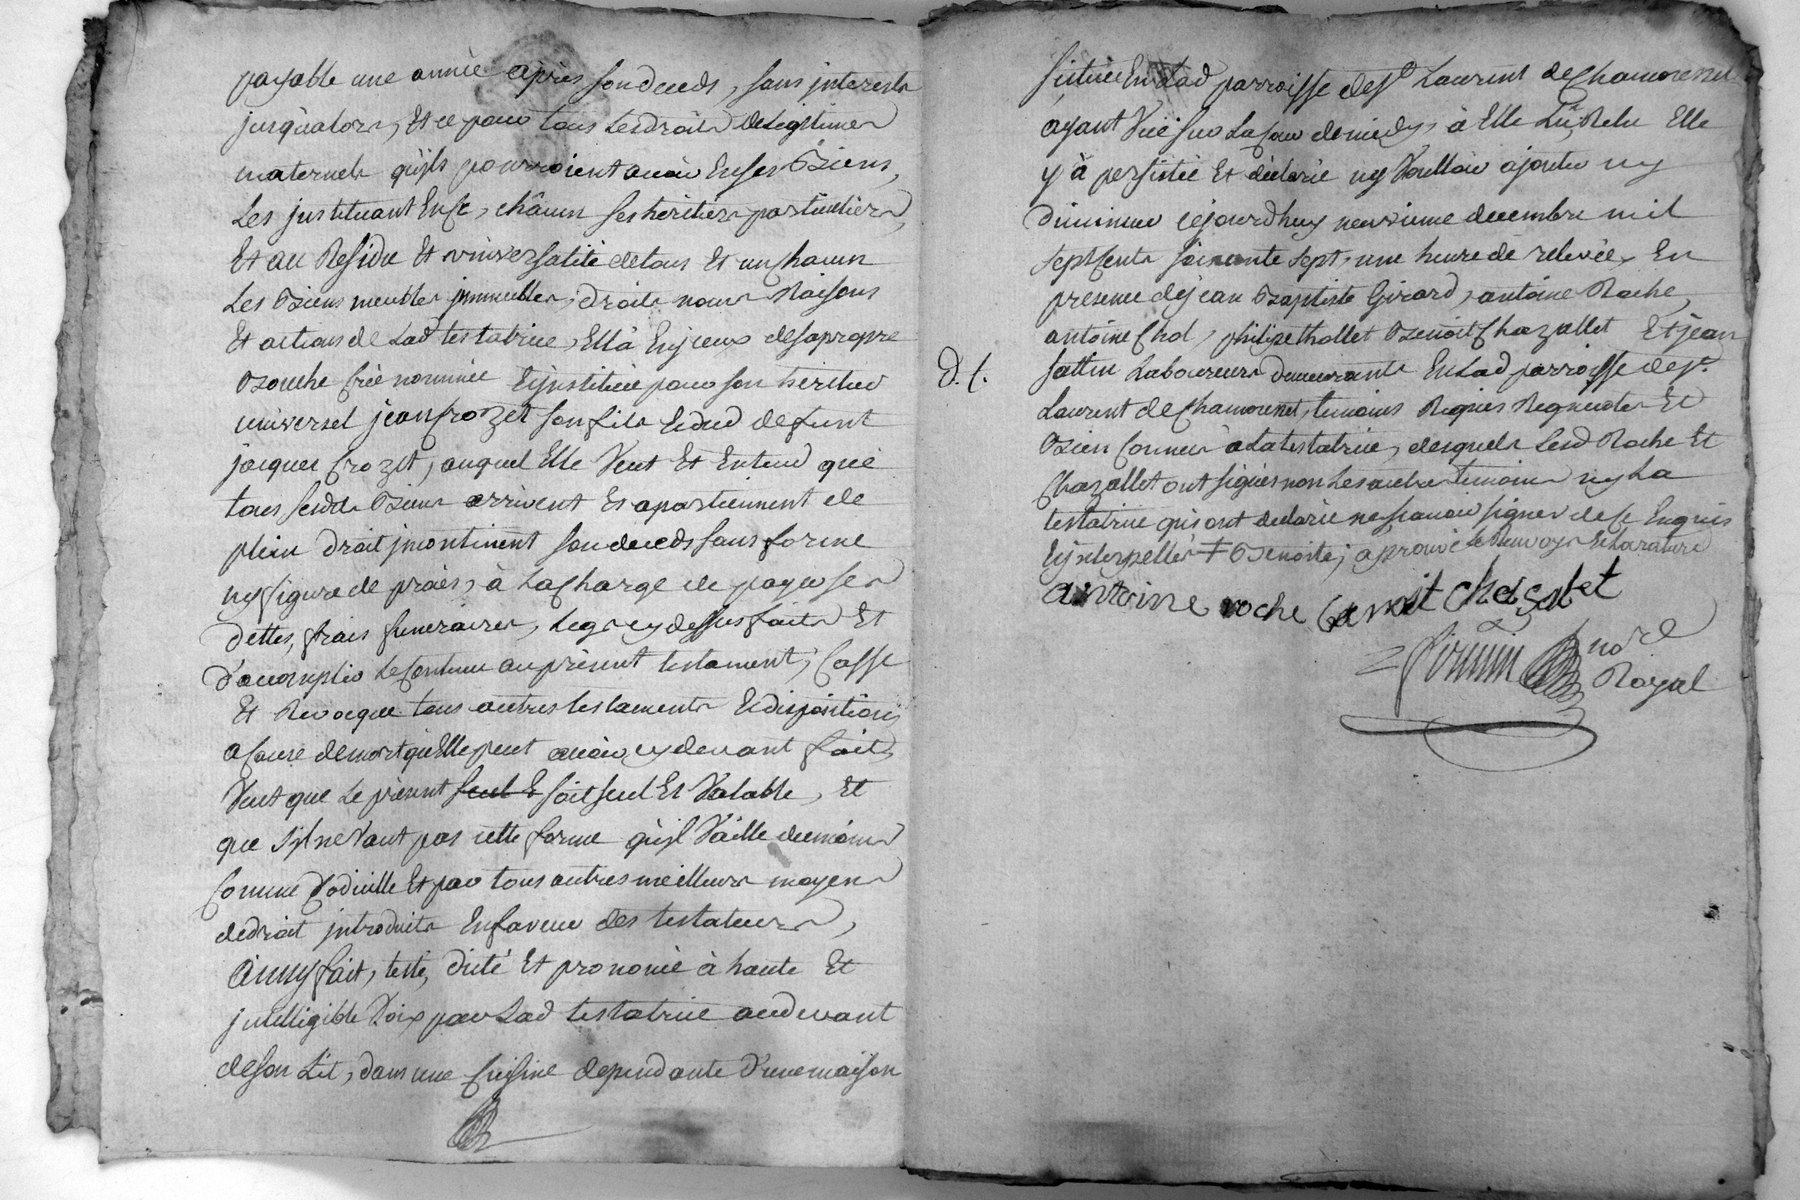 payable une année après son deceds, sans interests
jusqu'alors, Et ce pour tous Les droits de Legitimes
maternels qu'ils pourroient avoir En ses Biens,
Les jnstituant En ce, châcun ses heritiers particuliers,
Et au Residu Et vniversalité de tous Et un chacun
Les Biens meubles jmmeubles, droits noms Raisons
Et actions de Lad testatrice, Ell'à
 de sa propre
Bouche Créé nommée Ejnstituée pour son heritier
universel jean crozet son fils Et dud defunt
jacques Crozet, auquel Elle Veut Et Entend que
tous sesd Biens arrivent Et apartiennent de
plein droit jncontinent son deceds sans forme
ny figure de procès, à La Charge de payer ses
dettes, frais funeraires, Legs cy dessus faits Et
d'accomplir Le Contenu au présent testament; Casse
Et Revocque tous autres testaments Et dispositions
a Cause de mort qu'Elle peut avoir cy devant fait,
Veut que Le présent seul E soit seul Et Valable, Et
que s'jl ne Vaut pas cette forme qu'jl Vaille dumoins
Comme Codicille Et par tous autres meilleurs moyens
de droit jntroduits En faveur des testateurs,
Ainsy fait, testé, dicté Et prononcé à haute Et
jntelligible Voix par Lad testatrice au devant
de son Lit, dans une Cuisine dependante d'une maison
située En Lad parroisse de st Laurent de Chamousset
ayant Vüe sur La Cour de midy, à Elle Lû, Relu Elle
y à persistée Et déclarée ny Voulloir ajouter ny
diminuer cejourdhuy neuvieme decembre mil
sept Cents soixante sept, une heure de relevée, En
presence de jean Baptiste Girard, antoine Roche,
antoine Chol, philipe thollet Benoit Chazallet Et jean
d. t. sattin Laboureurs demeurants En Lad parroisse de st.
Laurent de Chamousset, temoins Requis Et
Bien Connus à La testatrice, desquels Lesd Roche Et
Chazallet ont signés non Les autres temoins ny La
testatrice qui ont déclarée ne sçavoir signer de ce Enquis
Ejnterpellés ‡ Benoite; aprouvé Le Renvoy Et La rature
antoine roche Benoit Chasalet
nore
Royal